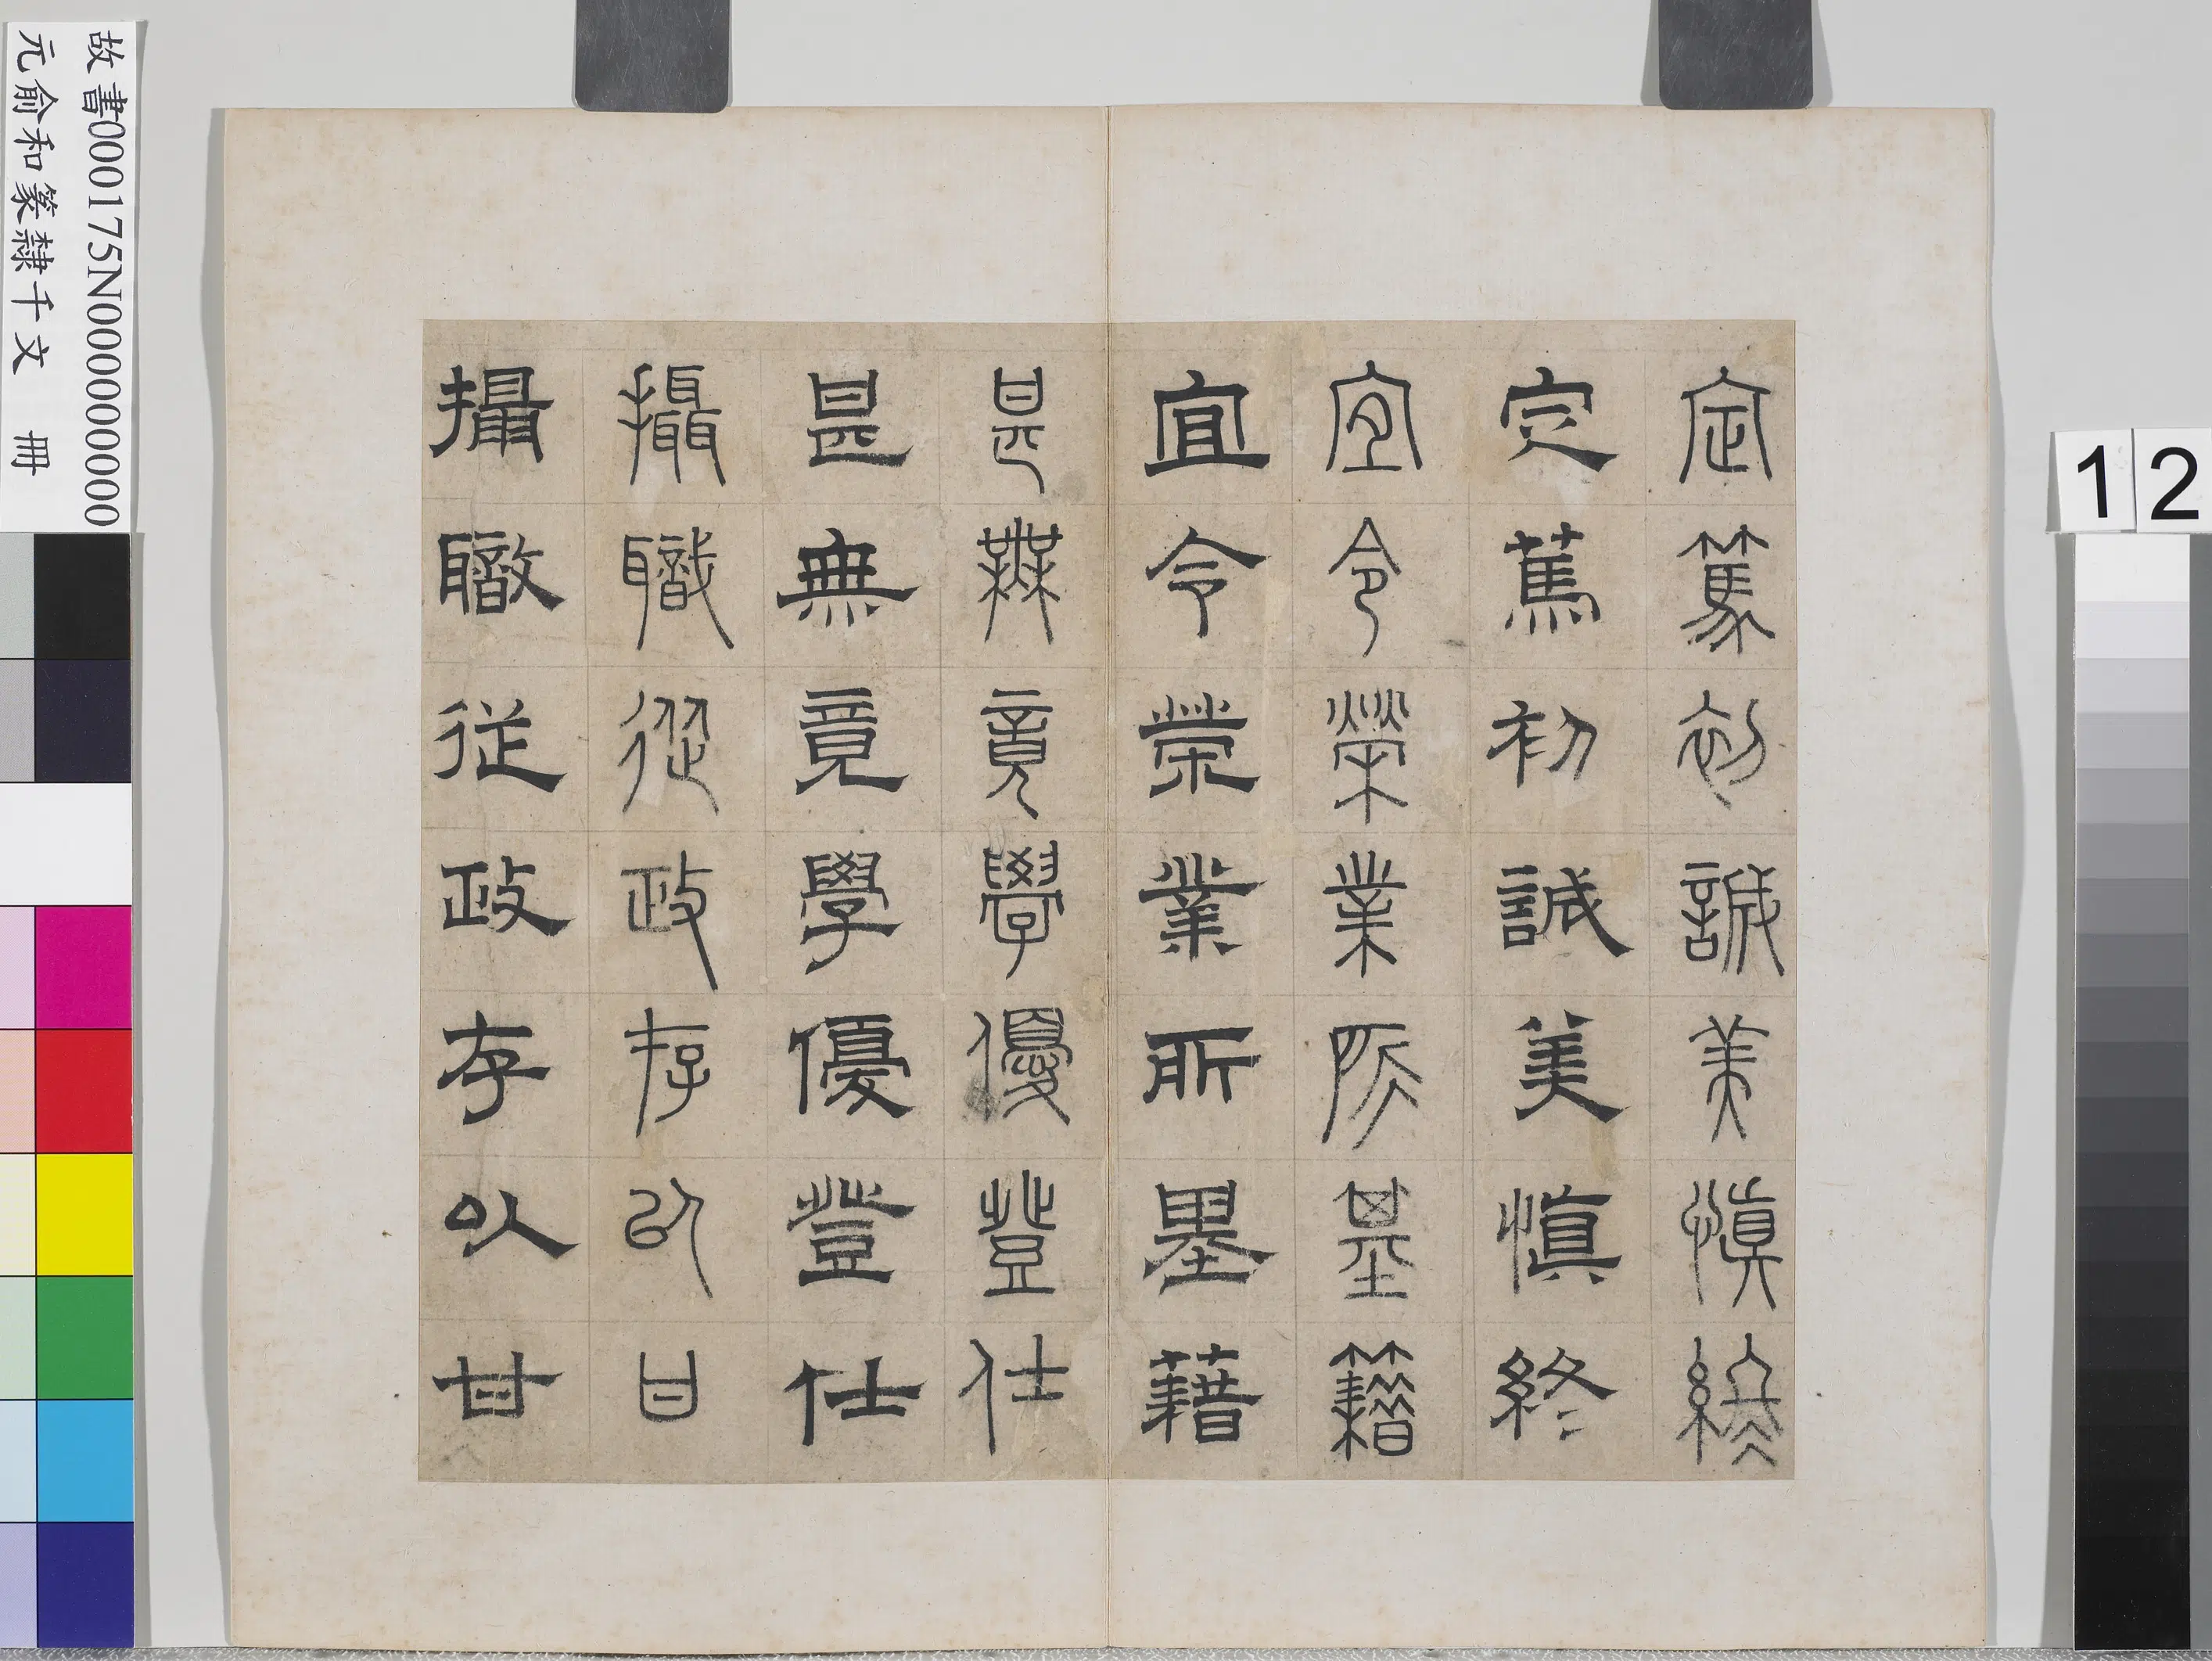 定篤初誠美慎終
定篤初誠美慎終
宜令榮業所基籍
宜令榮業所墨藉
甚無竟學優登仕
甚無竟學優登仕
攝職從政存以甘
攝職從政存以甘
故書000175N000000000
元俞和篆隸千文 冊
12